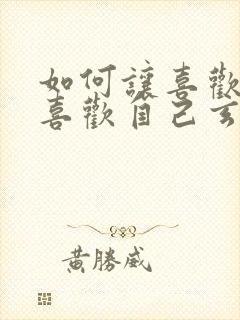 如何讓喜歡
喜歡自己
黃勝威